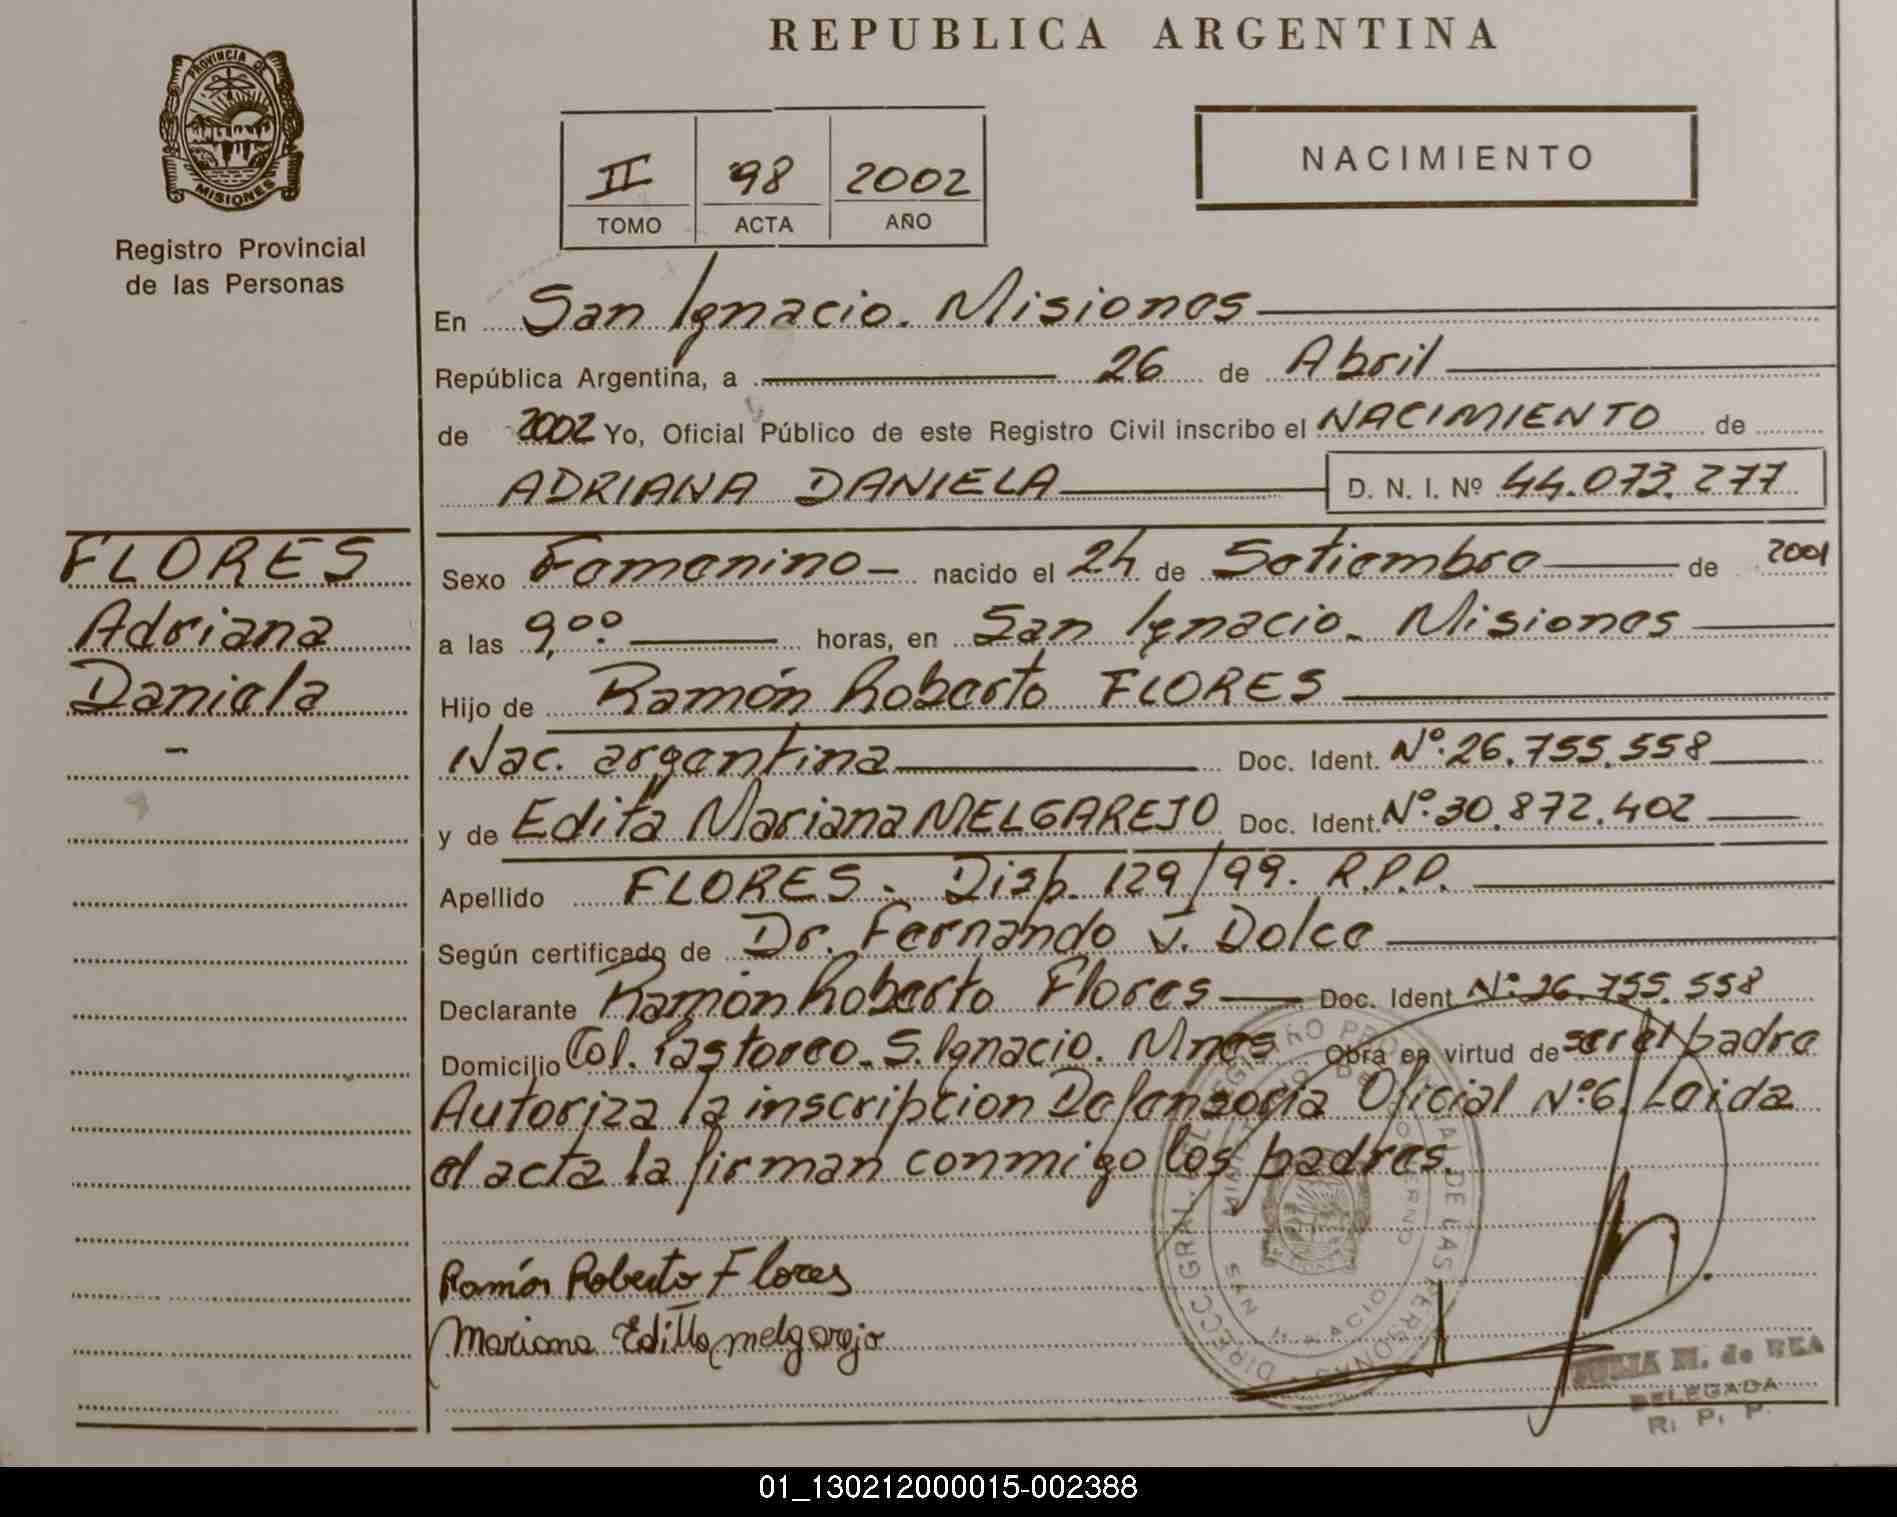 REPUBLICA ARGENTINA
PROVINCIA DE
MISIONES
Registro Provincial
de las Personas
NACIMIENTO
II 98 2002
TOMO ACTA AÑO
En San Ignacio. Misiones
República Argentina, a 26 de Abril
de 2002 Yo, Oficial Público de este Registro Civil inscribo el NACIMIENTO de
ADRIANA DANIELA D. N. I. Nº 44.073.277
FLORES
Adriana
Daniela
Sexo Femenino nacido el 24 de Setiembre de 2001
a las 9,00 horas, en San Ignacio. Misiones
Hijo de Ramón Roberto FLORES
Nac. argentina Doc. Ident. Nº 26.755.558
y de Edita Mariana MELGAREJO Doc. Ident. Nº 30.872.402
Apellido FLORES. Disp. 129/99. R.P.P.
Según certificado de Dr. Fernando J. Dolce
Declarante Ramón Roberto Flores Doc. Ident Nº 26.755.558
Domicilio Col. Pastoreo. S. Ignacio. Mnes Obra en virtud de ser el padre
Autoriza la inscripcion Defensoria Oficial Nº 6. Leida
el acta la firman conmigo los padres.
Ramón Roberto Flores
Mariana Editta melgarejo
DIRECC. GRAL. DEL REGISTRO PROVINCIAL DE LAS PERSONAS
MINISTERIO DE GOBIERNO
SAN IGNACIO
JULIA M. de REA
DELEGADA
R. P. P.
01_130212000015-002388